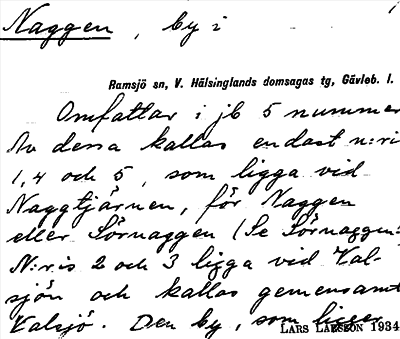 Naggen, by i
Ramsjö sn, V. Hälsinglands domsagas tg, Gävleb. l.
Omfattar i jb 5 nummer
Av dessa kallas endast n:ris
1, 4 och 5, som ligga vid
Naggtjärnen, för Naggen
eller Sörnaggen (Se Sörnaggen:
N:ris 2 och 3 ligga vid Val-
sjön och kallas gemensamt
Valsjö. Den by, som ligger
LARS LARSSON 1934